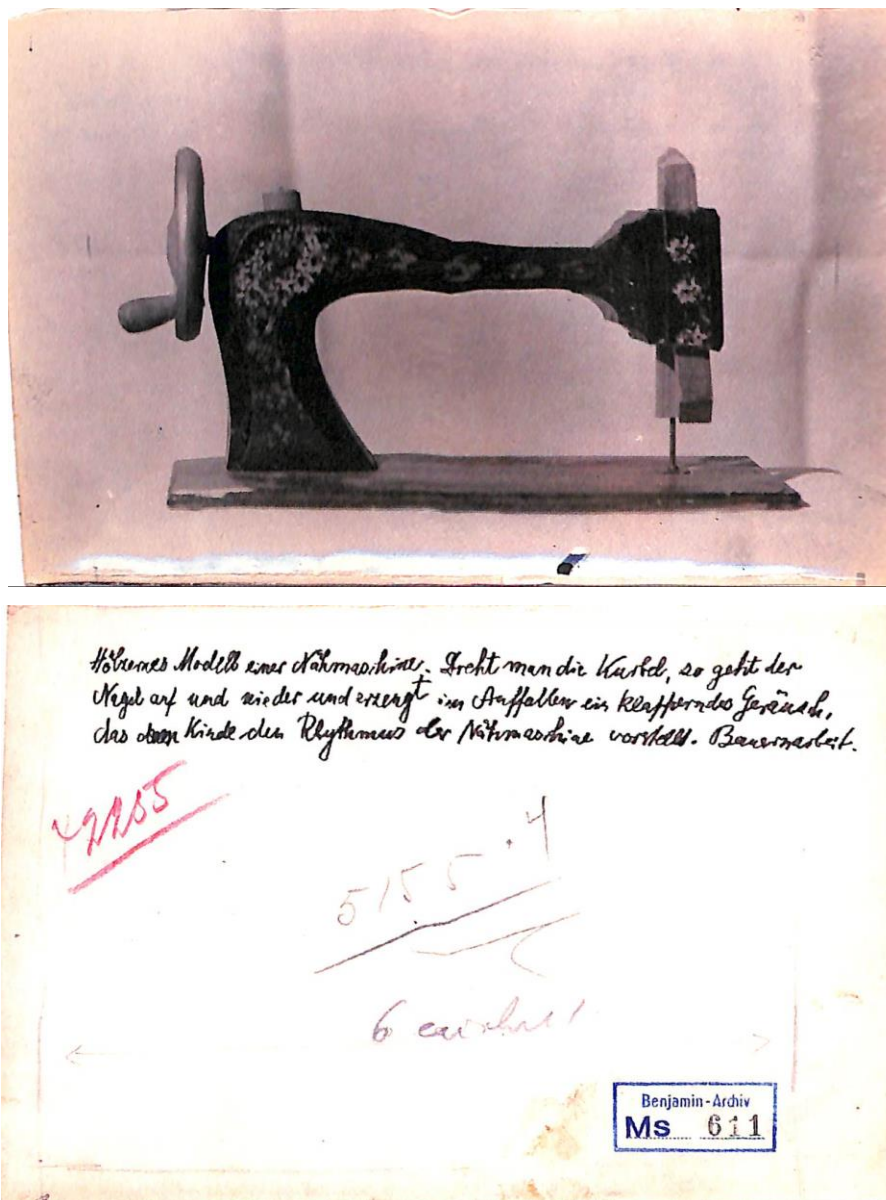 Hölzernes Modell einer Nähmaschine. Dreht man die Kurbel, so geht der
Nagel auf und nieder und erzeugt im Auffallen ein klapperndes Geräusch,
das dem Kinde den Rhythmus der Nähmaschine vorstellt. Bauernarbeit.
5155.4
6
Benjamin-Archiv
Ms 611